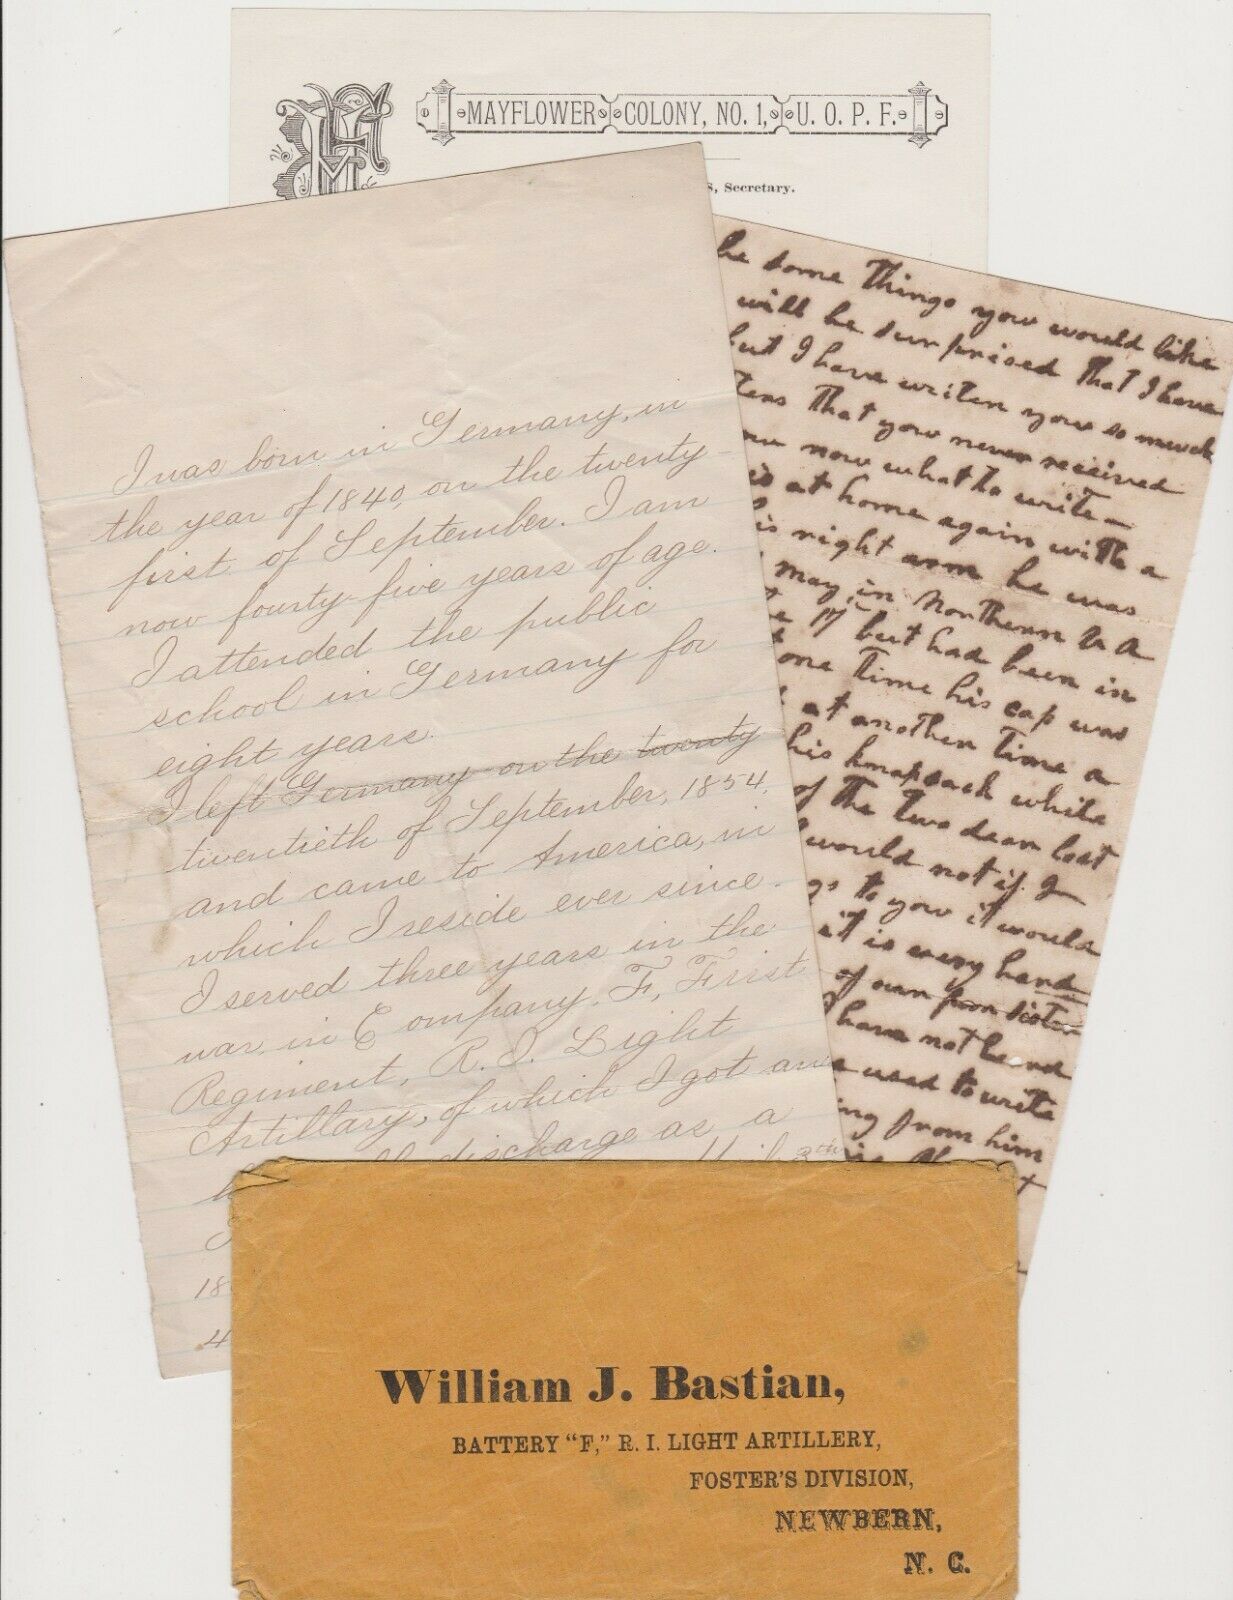 MAYFLOWER COLONY, NO. 1, U. O. P. F.
S, Secretary.
I was born in Germany, in
the year of 1840, on the twenty-
first of September. I am
now fourty-five years of age.
I attended the public
school in Germany for
eight years.
I left Germany on the twenty
twentieth of September, 1854,
and came to America, in
which I reside ever since.
I served three years in the
war, in Company. F, Frist
Regiment, R. I. Light
Artillary, of which I got an
discharge as a
18
4
be some things you would like
will be surprised that I have
but I have writen you so much
ters that you never received
now what to write—
at home again with a
his right arm he was
May, in Northern VA
17 but had been in
one time his cap was
at another time a
his knapsack white
of the two dear lost
would not if I
to you it would
it is every hard
of our poor sister
have not heard
used to write
ing from him
William J. Bastian,
BATTERY "F," R. I. LIGHT ARTILLERY,
FOSTER'S DIVISION,
NEWBERN,
N. C.